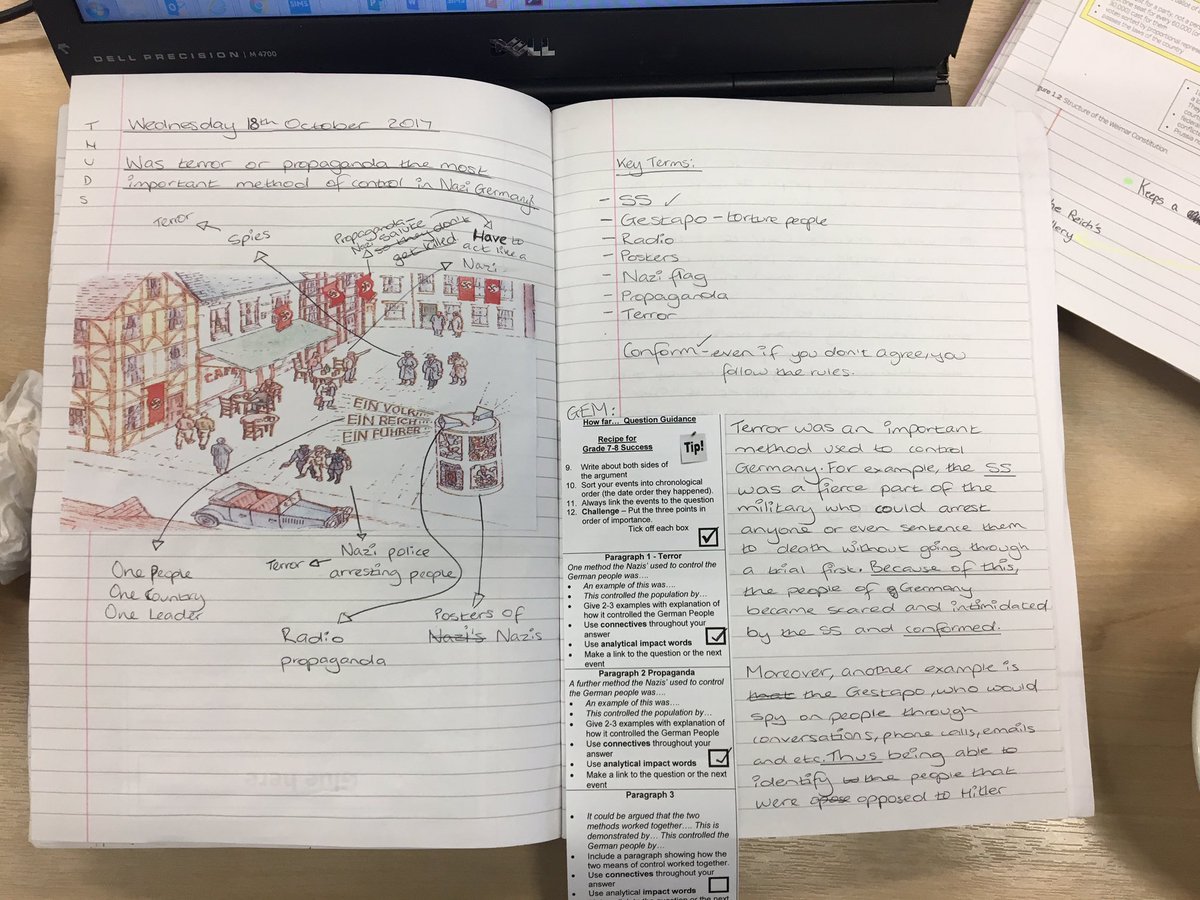 SIMS
DELL PRECISION | M4700
DELL
T
H
U
D
S
Wednesday 18th October 2017
Was terror or propaganda the most
important method of control in Nazi Germany?
Terror
Spies
Propaganda-
Nazi salute
so they don't
get killed
Have to
act like a
Nazi
CAFE
EIN VOLK...
EIN REICH...
EIN FUHRER
One People
One Country
One Leader
Terror
Nazi police
arresting people
Radio
propaganda
Posters of
Nazi's Nazis
Glue here
Key Terms:
- SS ✓
- Gestapo - torture people
- Radio
- Posters
- Nazi flag
- Propaganda
- Terror
Conform ✓ - even if you don't agree, you
follow the rules.
GEM:
How far… Question Guidance
Recipe for
Grade 7-8 Success
Tip!
9. Write about both sides of
the argument
10. Sort your events into chronological
order (the date order they happened).
11. Always link the events to the question
12. Challenge – Put the three points in
order of importance.
Tick off each box
Paragraph 1 - Terror
One method the Nazis' used to control the
German people was….
• An example of this was….
• This controlled the population by…
• Give 2-3 examples with explanation of
how it controlled the German People
• Use connectives throughout your
answer
• Use analytical impact words
• Make a link to the question or the next
event
Paragraph 2 Propaganda
A further method the Nazis' used to control
the German people was….
• An example of this was….
• This controlled the population by…
• Give 2-3 examples with explanation of
how it controlled the German People
• Use connectives throughout your
answer
• Use analytical impact words
• Make a link to the question or the next
event
Paragraph 3
• It could be argued that the two
methods worked together…. This is
demonstrated by… This controlled the
German people by…
• Include a paragraph showing how the
two means of control worked together.
• Use connectives throughout your
answer
• Use analytical impact words
Terror was an important
method used to control
Germany. For example, the SS
was a fierce part of the
military who could arrest
anyone or even sentence them
to death without going through
a trial first. Because of this,
the people of Germany
became scared and intimidated
by the SS and conformed.
Moreover, another example is
the Gestapo, who would
spy on people through
conversations, phone calls, emails
and etc. Thus being able to
identify to the people that
were opose opposed to Hitler
30,000
one seat for every 60,000 (or
cast for them
passes the laws of the country
Figure 1.2 Structure of the Weimar Constitution
Keeps a
the Reich's